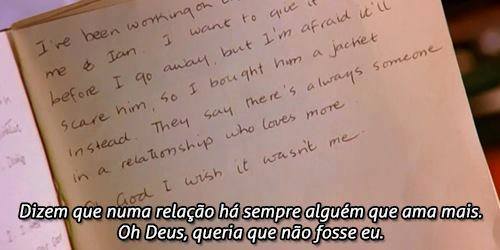 I've been working on
me & Ian. I want to give it
before I go away, but I'm afraid it'll
scare him, so I bought him a jacket
instead. They say there's always someone
in a relationship who loves more.
God I wish it wasn't me.
Dizem que numa relação há sempre alguém que ama mais.
Oh Deus, queria que não fosse eu.